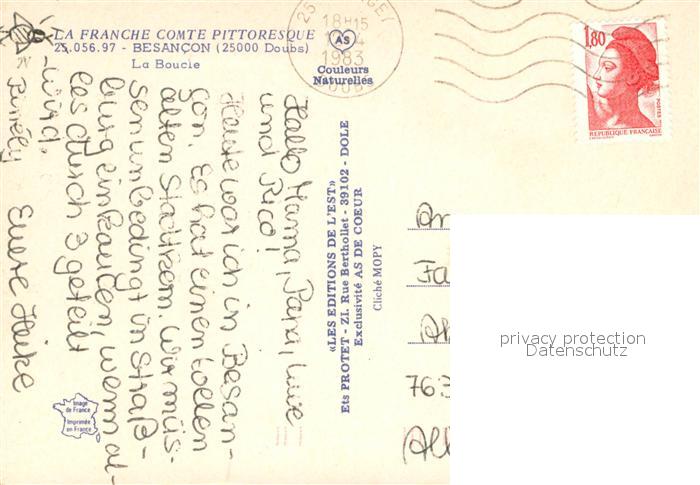 LA FRANCHE COMTE PITTORESQUE
25.056.97 - BESANÇON (25000 Doubs)
La Boucle
AS
Couleurs
Naturelles
18H15
1983
1,80
POSTES
REPUBLIQUE FRANÇAISE
Hallo Mama, Papa,
und Rico!
Heute war ich in Besan-
çon. Es hat einen tollen
alten Stadtkern. Wir müs-
sen unbedingt in Straß-
burg einkaufen, wenn al-
les durch 3 geteilt
wird.
Eure Heike
«LES EDITIONS DE L'EST»
Ets PROTET - Z.I. Rue Berthollet - 39102 - DOLE
Exclusivité AS DE COEUR
Cliché MOPY
An
Fa
763
All
privacy protection
Datenschutz
Image
de France
Imprimée
en France